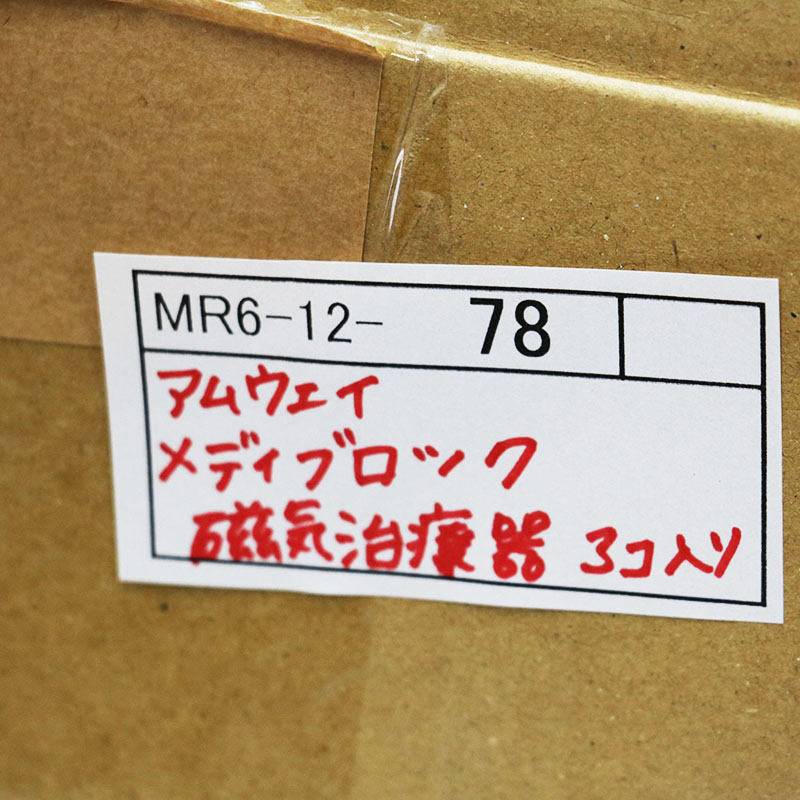 MR6-12- 78
アムウェイ
メディブロック
磁気治療器 3コ入り